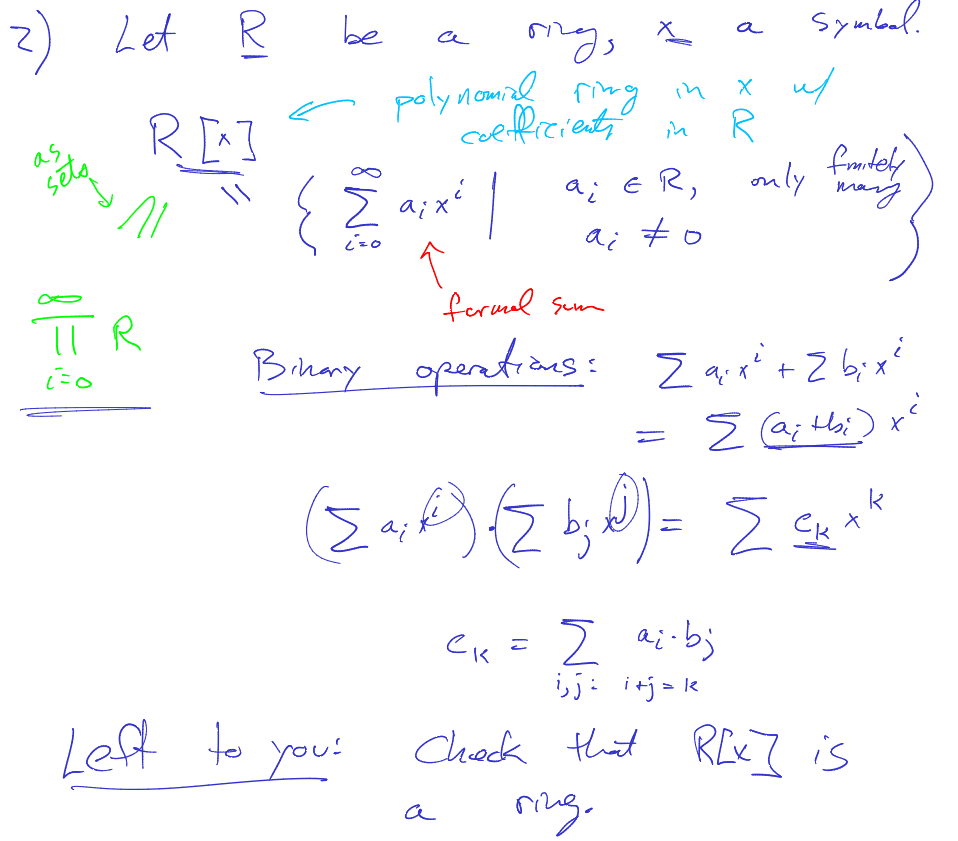 2) Let R be a ring, x a symbol.
R[x] ← polynomial ring in x w/
coefficients in R
as sets
=
" { ∑_{i=0}^{∞} a_i x^i | a_i ∈ R, only finitely many a_i ≠ 0 }
formal sum
∏_{i=0}^{∞} R
Binary operations: ∑ a_i x^i + ∑ b_i x^i
= ∑ (a_i + b_i) x^i
(∑ a_i x^i) · (∑ b_j x^j) = ∑ c_k x^k
c_k = ∑_{i,j: i+j=k} a_i · b_j
Left to you: Check that R[x] is
a ring.